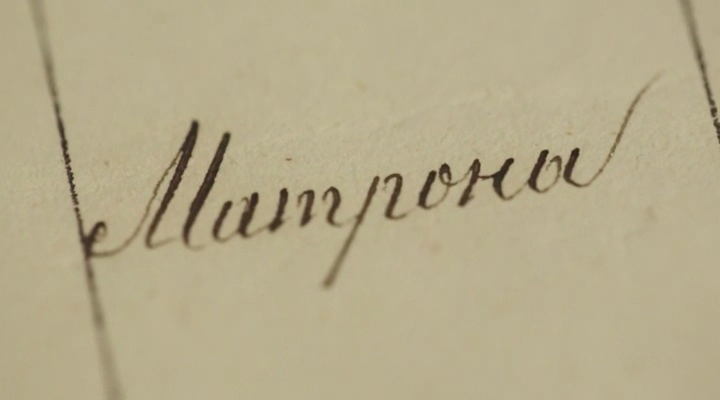 Матрона